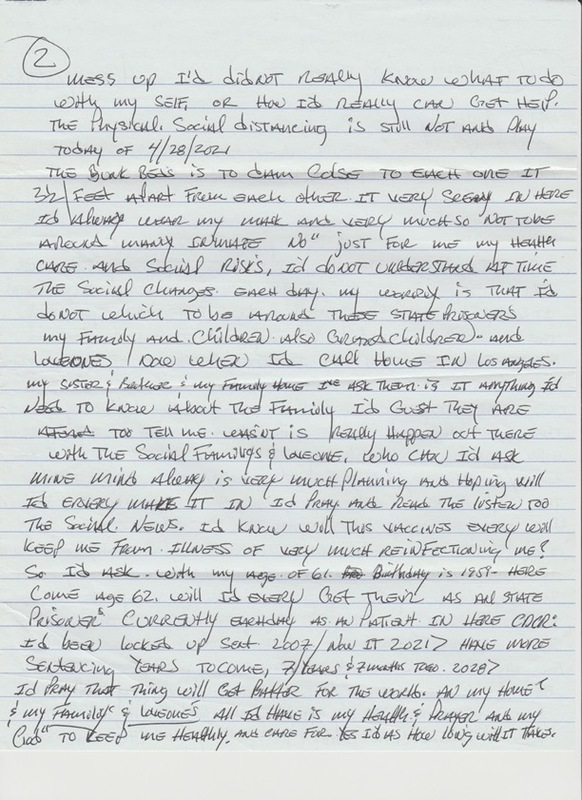 2
mess up I'd didNot Really know what to do
with my self, or How I'd Really can get Help.
The Physical. Social distancing is still Not and Play
Today of 4/28/2021
The Bunk Beds is to dam Close to each one it
3½ feet apart from each other. it very in here
I'd Always wear my mask and very much so Not to be
around many inmate No" just for me my Health
care and Social Risk's, I'd do Not understand At time
The Social Changes. each day. my worry is that I'd
do Not which to be around these State Prisoners
my Family and. Children. also Grand children - and
loveones, Now when I'd call Home in Los Angeles.
my sister & Brother & my Family Home ask them is it anything I'd
Need to know about the Family I'd Guest they are
too Tell me. wasnt is Really Happen out there
with the Social Familys & loveone, who can I'd ask
mine mind Alway is very much Planning and Hoping will
I'd every make it in I'd Pray and Read the listen too
The Social. News. I'd know will this vaccines every will
keep me from. illness of very much reinfectioning me?
So I'd ask. with my age. of 61. Birthday is 1959- Here
come age 62. will I'd every get Their as an state
Prisoner's Currently eachday as an Patient in Here CDCR:
I'd been locked up 2007/ Now it 2021> Have more
Sentencing Years to come, 7/Years & 7 months 2028>
I'd Pray that thing will get Better for the world. an my Home
& my Family's & loveones All I'd Have is my Health & Prayer and my
"God" to keep me Healthly. and care for. Yes I'd as How long will it takes.